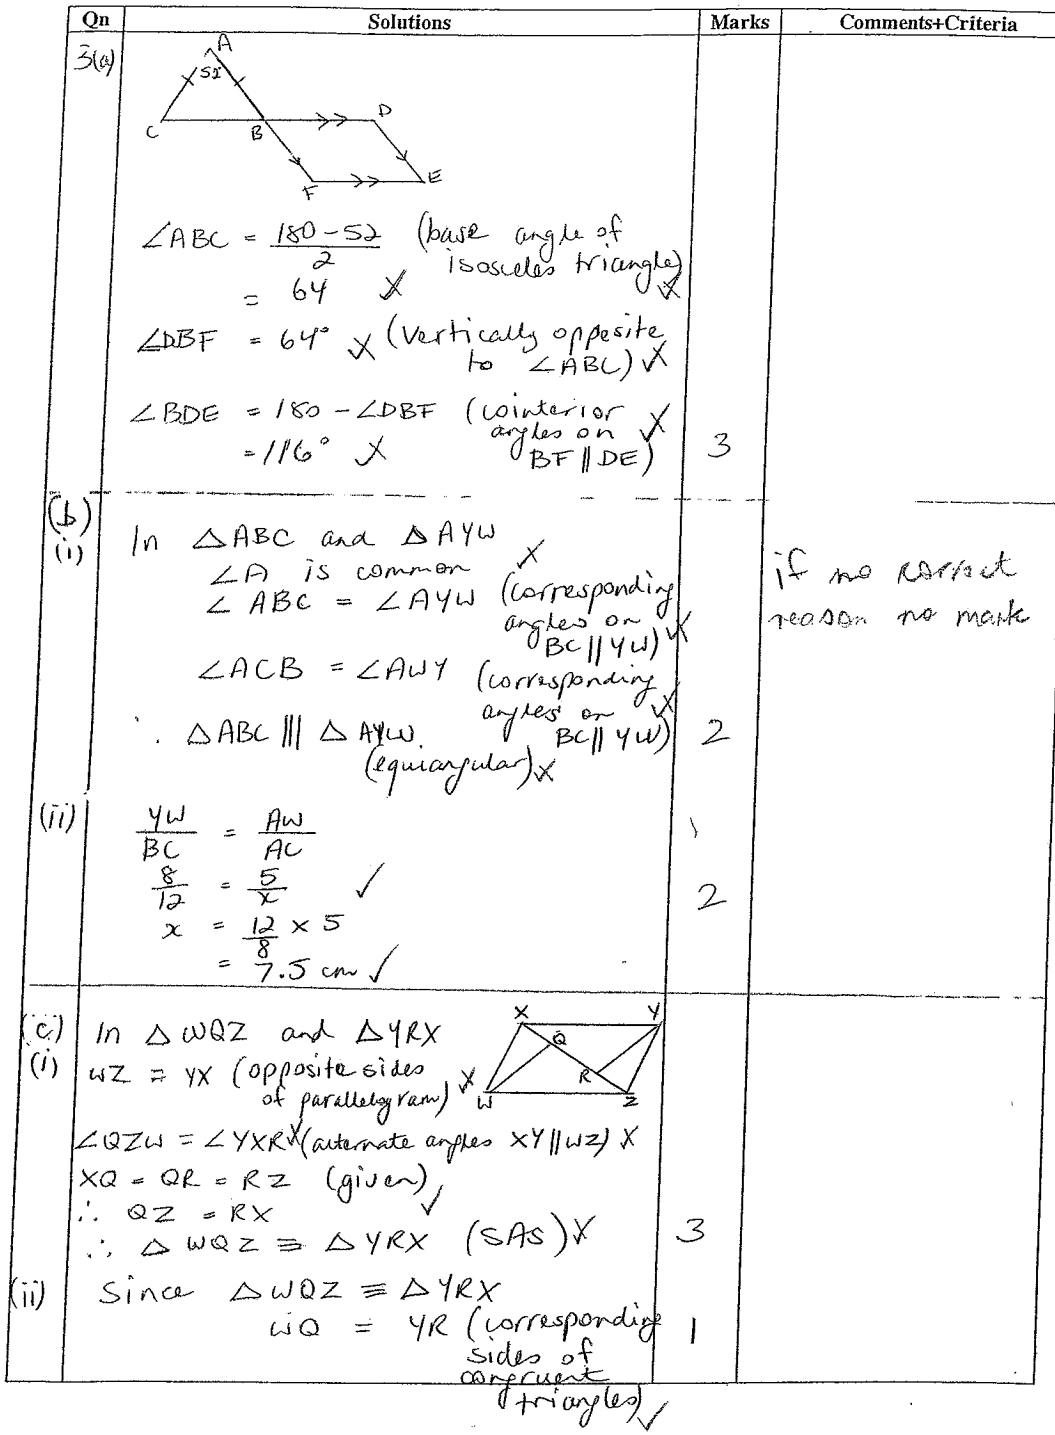 Qn Solutions Marks Comments+Criteria
3(a)
A
52°
C B D
F E
∠ABC = (180 - 52)/2 (base angle of isosceles triangle)
= 64
∠DBF = 64° (Vertically opposite to ∠ABC)
∠BDE = 180 - ∠DBF (cointerior angles on BF || DE)
= 116°
3
(b)
(i) In △ABC and △AYW
∠A is common
∠ABC = ∠AYW (corresponding angles on BC || YW)
if no correct reason no mark
∠ACB = ∠AWY (corresponding angles on BC || YW)
∴ △ABC ||| △AYW (equiangular)
2
(ii) YW/BC = AW/AC
8/12 = 5/x ✓
x = 12/8 × 5
= 7.5 cm ✓
2
(c)
(i) In △WQZ and △YRX
X Y
Q
R
W Z
WZ = YX (opposite sides of parallelogram)
∠QZW = ∠YXR (alternate angles XY || WZ)
XQ = QR = RZ (given)
∴ QZ = RX ✓
∴ △WQZ ≡ △YRX (SAS)
3
(ii) Since △WQZ ≡ △YRX
WQ = YR (corresponding sides of congruent triangles) ✓
1